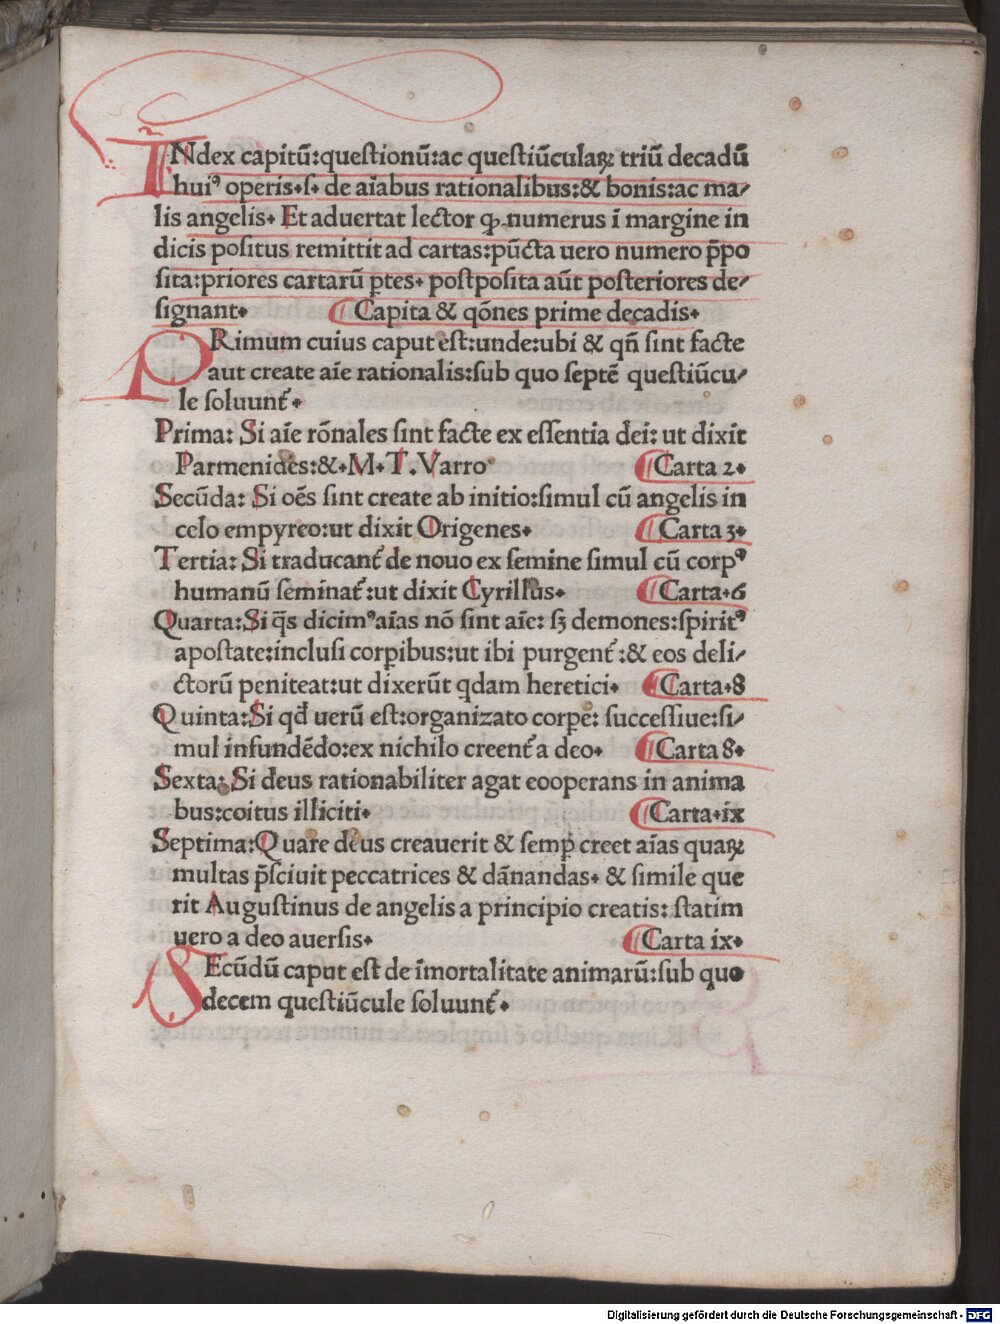 INdex capitū:questionū:ac questiūculaꝝ triū decadū
huiꝰ operis.s. de aīabus rationalibus:& bonis:ac ma/
lis angelis. Et aduertat lector ꝙ numerus ī margine in
dicis positus remittit ad cartas:pūcta uero numero p̄po
sita:priores cartarū ꝑtes. postposita aūt posteriores de/
signant. ¶Capita & qōnes prime decadis.
PRimum cuius caput est:unde:ubi & qn̄ sint facte
aut create aīe rationalis:sub quo septē questiūcu/
le soluunt᷑.
Prima: Si aīe rōnales sint facte ex essentia dei: ut dixit
Parmenides:&.M.T.Varro ¶Carta 2.
Secūda: Si oēs sint create ab initio:simul cū angelis in
celo empyreo:ut dixit Origenes. ¶Carta 3.
Tertia: Si traducant᷑ de nouo ex semine simul cū corpꝰ
humanū seminat᷑:ut dixit Cyrillus. ¶Carta.6
Quarta:Si q̄s dicimꝰ aīas nō sint aīe: sꝫ demones:spiritꝰ
apostate:inclusi corpibus:ut ibi purgent᷑:& eos deli/
ctorū peniteat:ut dixerūt qdam heretici. ¶Carta.8
Quinta:Si qđ uerū est:organizato corpe: successiue:si/
mul infundēdo:ex nichilo creent᷑ a deo. ¶Carta 8.
Sexta: Si deus rationabiliter agat eooperans in anima
bus:coitus illiciti. ¶Carta.ix
Septima:Quare deus creauerit & semꝑ creet aīas quaꝝ
multas p̄sciuit peccatrices & dānandas. & simile que
rit Augustinus de angelis a principio creatis: statim
uero a deo auersis. ¶Carta ix.
SEcūdū caput est de īmortalitate animarū:sub quo
decem questiūcule soluunt᷑.
Digitalisierung gefördert durch die Deutsche Forschungsgemeinschaft - DFG